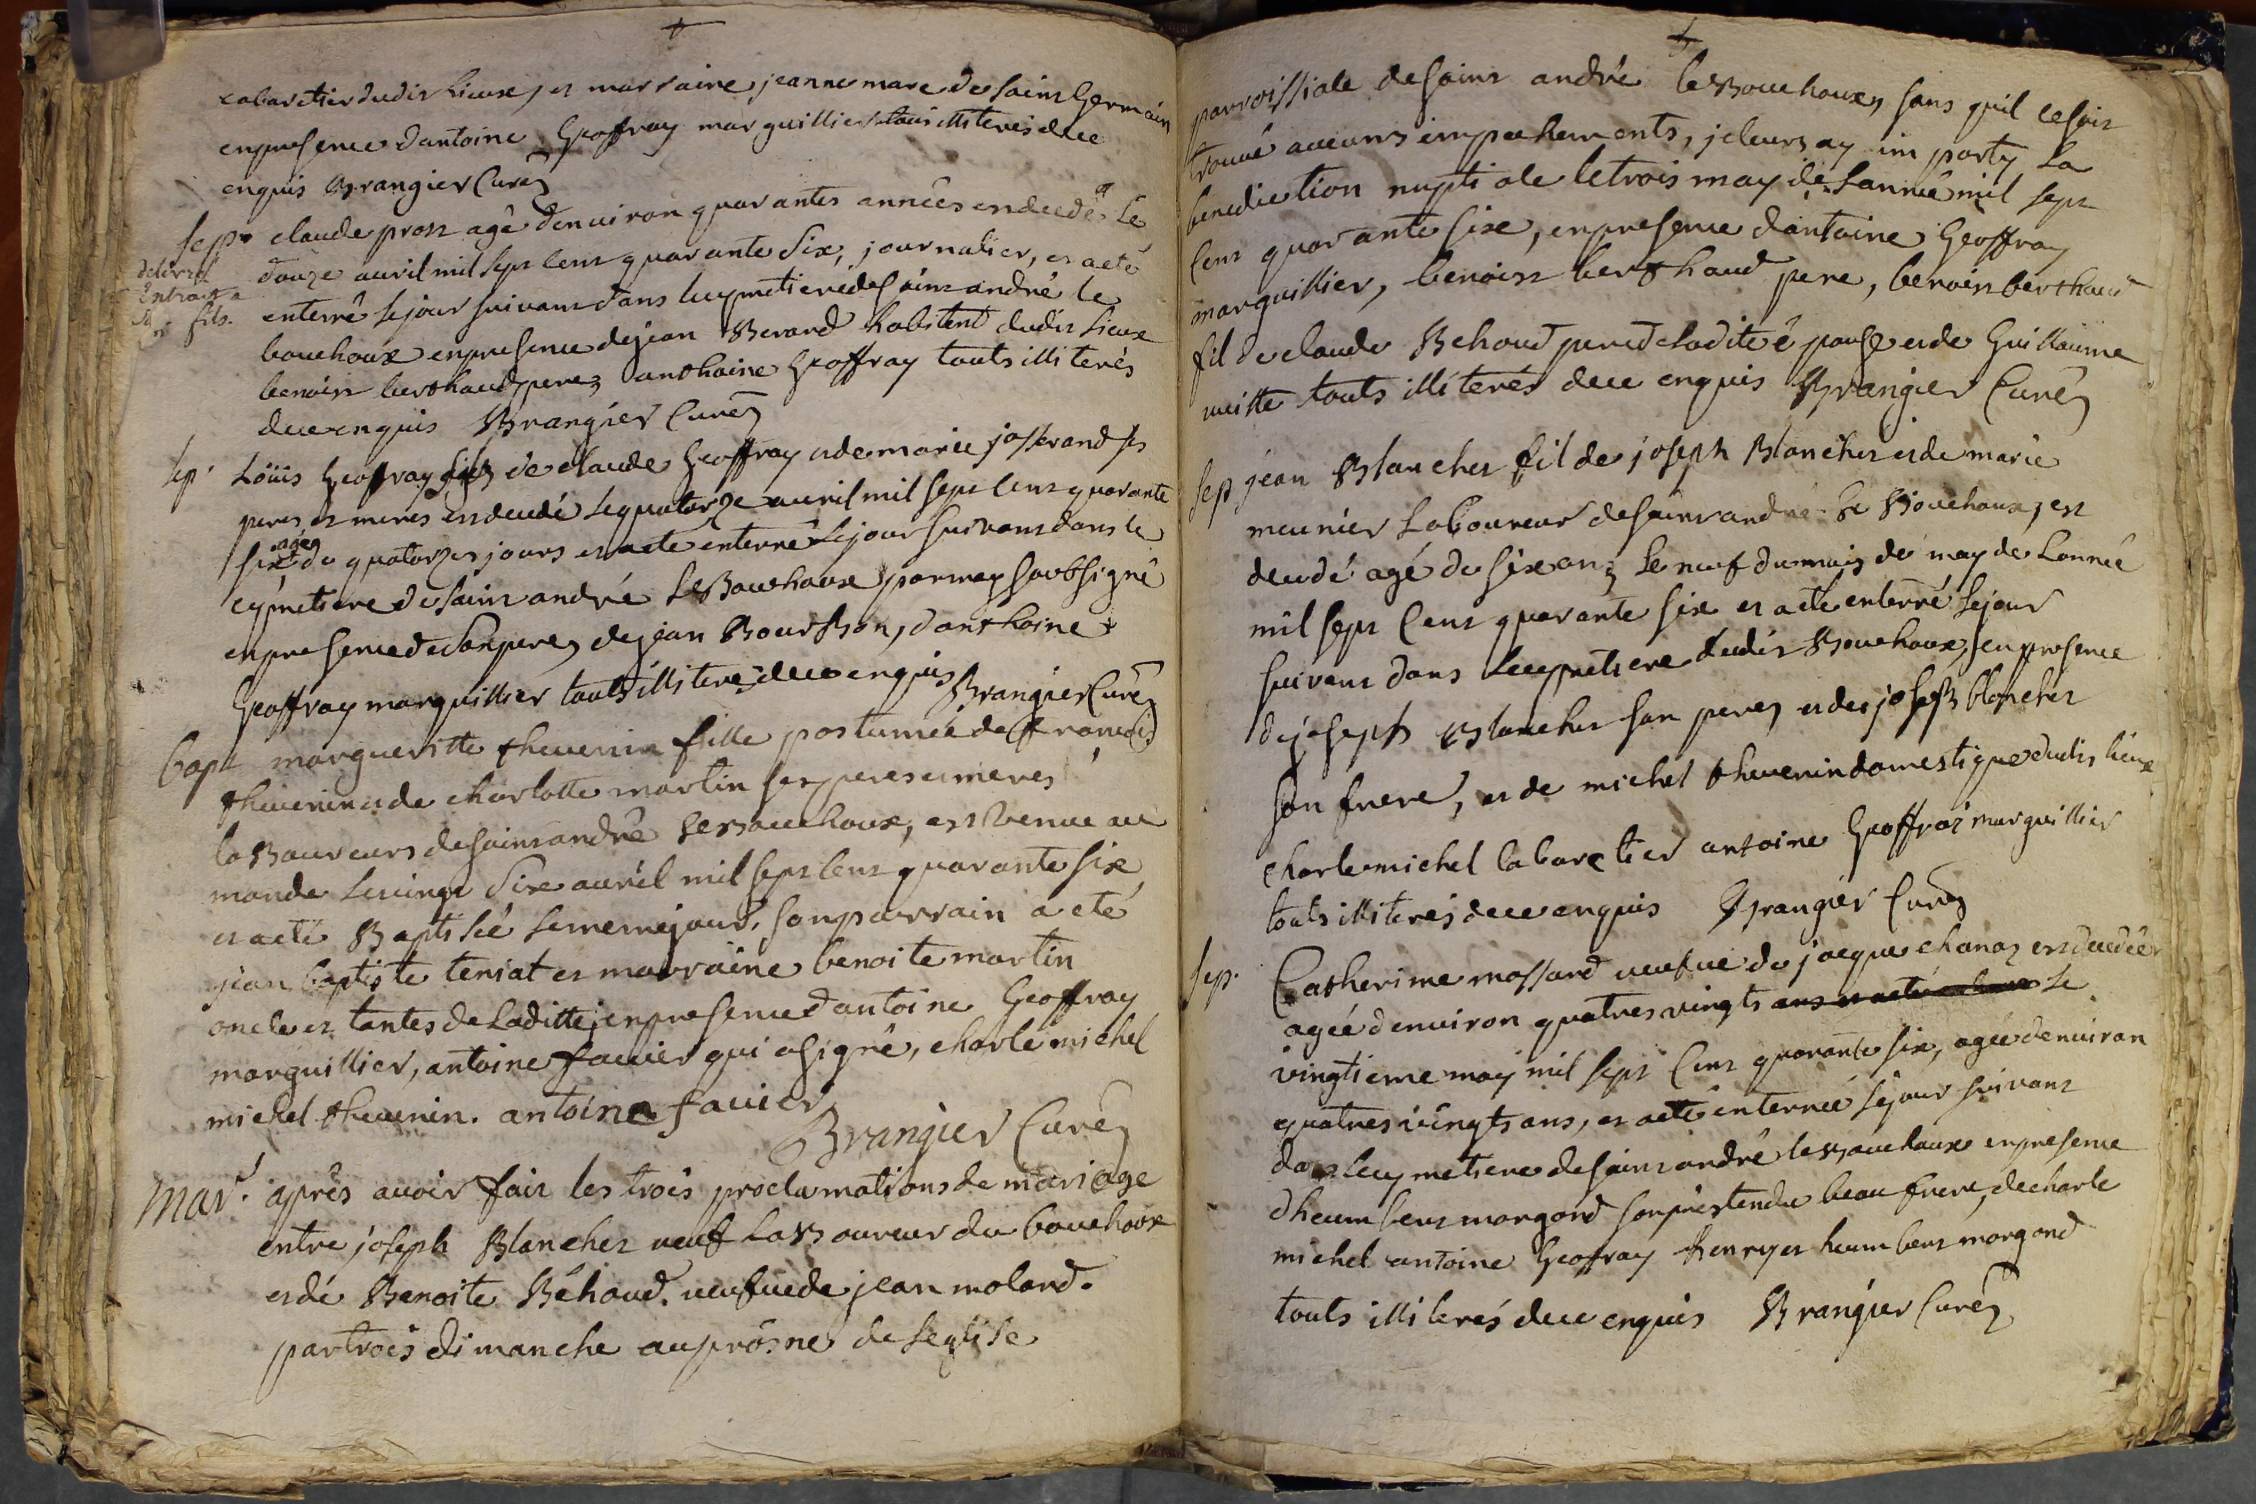 cabaretier dudit Lieux, et marraine jeanne marc de saint Germain
enpresence dantoine Geoffray marguillier touts illiterés dece
enquis Brangier Curé
sep. claude prost agé denviron quarantes années est decedé Le
delivré
Extrait a
fils.
douze avril mil sept cent quarante six, journalier, et a eté
enterré le jour suivant dans le cymetiere de saint andré le
bouchoux enpresence de jean Berard habitent dudit Lieux
benoist berthaud pere, anthoine Geoffray touts illiterés
dece enquis Brangier Curé
sep. Loüis Geoffray fils de claude Geoffray et de marie josserand ses
peres et meres est decedé le quatorze avril mil sept cent quarante
six agé de quatorzes jours et a ete enterré le jour suivant dans le
cymetiere de saint andré le Bouchoux par moy soubsigné
enpresence de son pere, de jean Bourbon, danthoine
Geoffray marguillier touts illiteré dece enquis Brangier Curé
bapt margueritte thevenin fille postumée de francois
thevenin et de charlotte martin ses peres et meres
laboureurs de saint andré le bouchoux, est venue au
monde le vingt six avril mil sept cent quarante six
et a eté Baptisée le meme jour, son parrain a eté
jean baptiste teniat et marraine benoite martin
oncle et tantes de Laditte, enpresence dantoine Geoffray
marguillier, antoine favier qui a signé, charle michel
michel thevenin. antoine favier
Brangier Curé
Mar. après avoir fait les trois proclamations de mariage
entre joseph Blanchet veuf Laboureur du bouchoux
et de Benoite Béhoud veufve de jean molard.
par trois dimanche au prosne de Leglise
parroissiale de saint andré le Bouchoux, sans quil ce soit
trouvé aucuns impechements, je leurs ay im party La
benediction nuptiale le trois may de Lannée mil sept
cent quarante sixe, enpresence dantoine Geoffray
marguillier, benoist berthaud pere, benoist berthaud
fil de claude Behoud pere de Ladite épouse et de Guillaume
touts illiterés dece enquis Brangier Curé
sep jean Blanchet fil de joseph Blanchet et de marie
meunier Laboureur de saint andré Le Bouchoux, est
decedé agé de six ans, Le neuf du mois de may de Lannée
mil sept cent quarante six et a eté enterré le jour
suivant dans Le cymetiere dudit Bouchoux, en presence
de joseph Blanchet son pere, et de joseph blanchet
son frere, et de michel thevenin domestique dudit lieux
charle michel cabaretier antoine Geoffroi marguillier
touts illiterés dece enquis Brangier Curé
sep. Catherinne mossard veufve de jacque chanas est decedée
agée denviron quatres vingts ans et a eté Le
vingtieme may mil sept cent quarante six, agée denviron
quatres vingts ans, et a eté enterrée le jour suivant
dans le cymetiere de saint andré le bouchoux enpresence
dheumbert morgond son prétendu beau frere, de charle
michel antoine Geoffray et heumbert morgond
touts illiterés dece enquis Brangier Curé